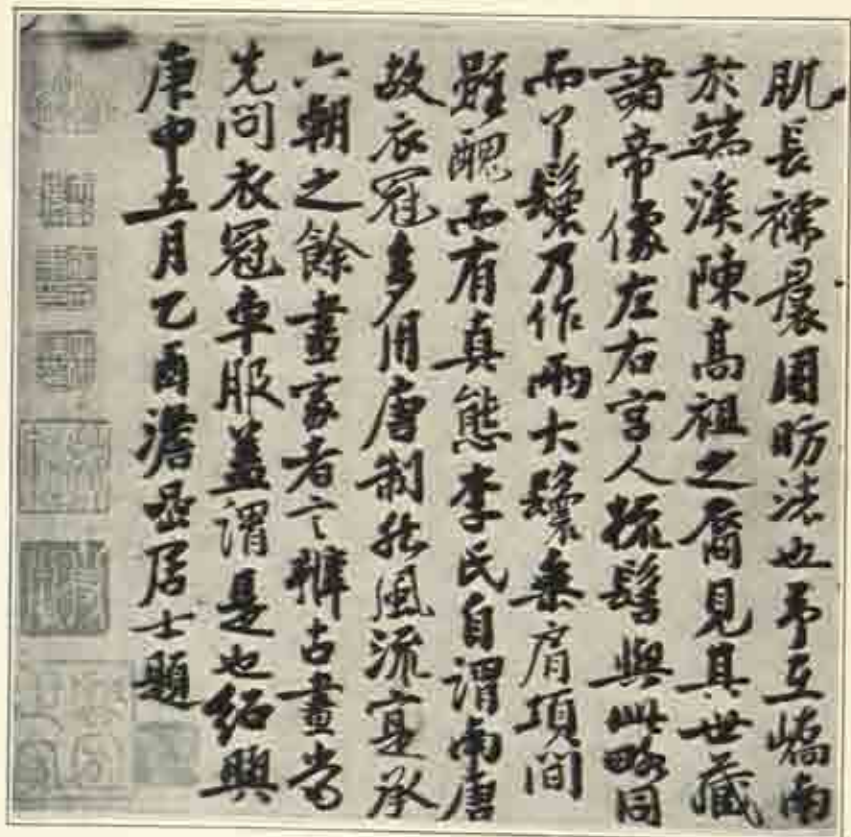 肌長襦裙周昉法也予至嶠南
於端溪陳高祖之裔見其世藏
諸帝像左右宮人梳髻與此略同
而丫鬟乃作兩大鬟垂肩項間
雖醜而有真態李氏自謂南唐
故衣冠多用唐制然風流實承
六朝之餘畫家者言辨古畫當
先問衣冠車服蓋謂是也紹興
庚申五月乙酉澹喦居士題